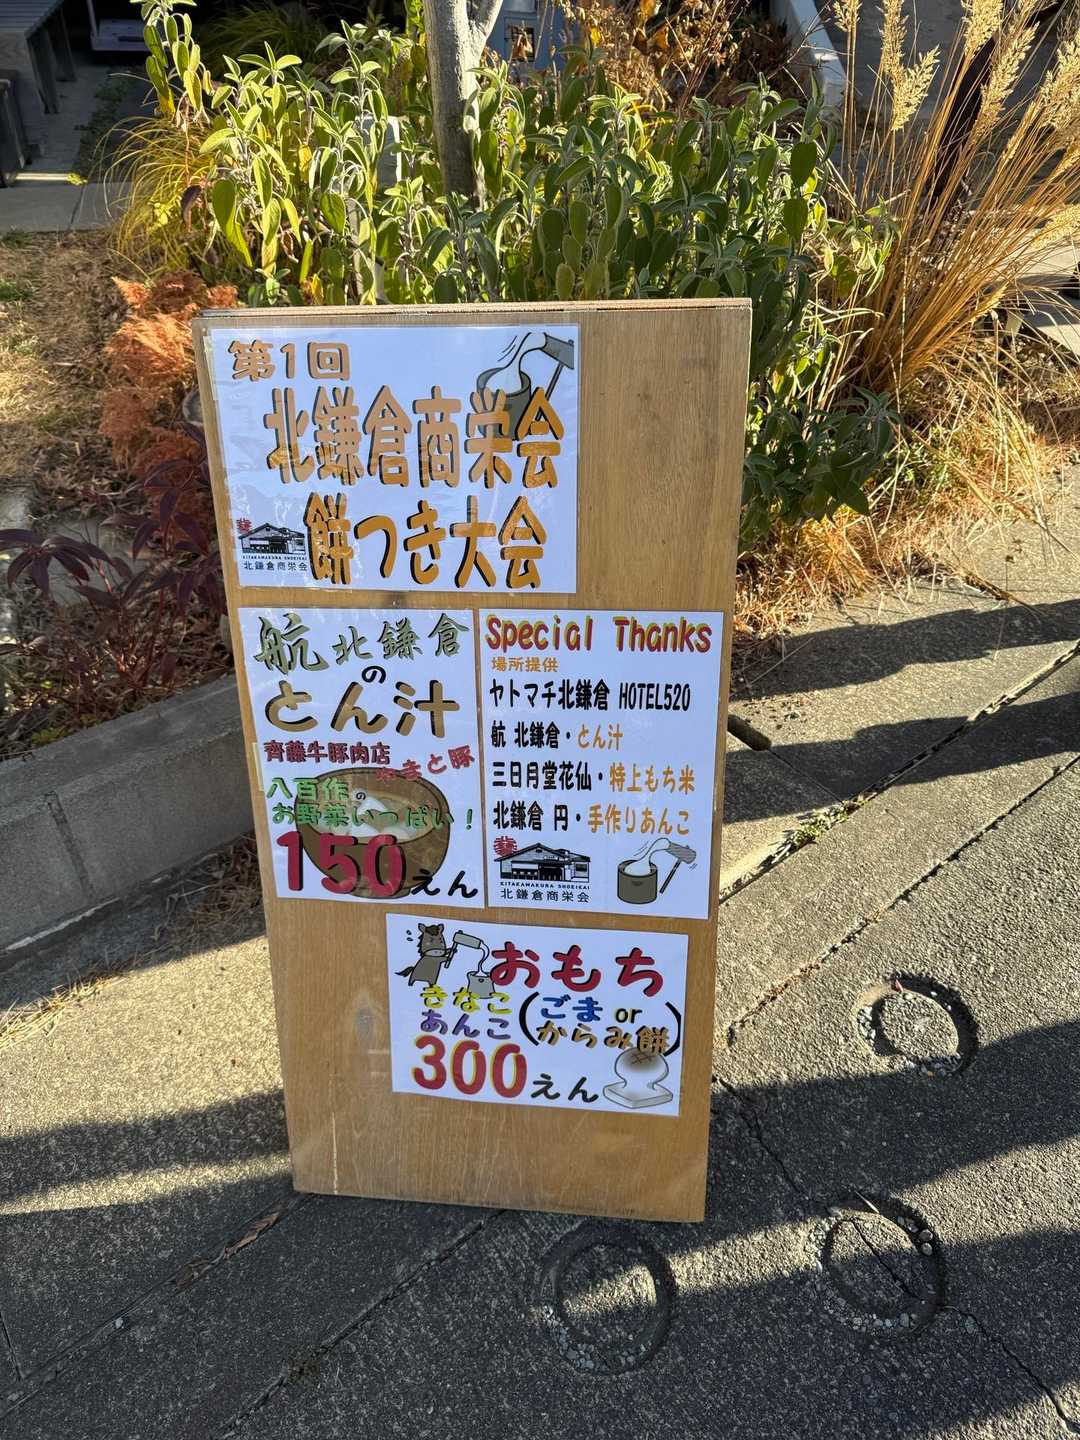 第1回
北鎌倉商栄会
餅つき大会
KITAKAMAKURA SHOEIKAI
北鎌倉商栄会
航 北鎌倉
の
とん汁
齊藤牛豚肉店
やまと豚
八百作の
お野菜いっぱい！
150えん
Special Thanks
場所提供
ヤトマチ北鎌倉 HOTEL520
航 北鎌倉・とん汁
三日月堂花仙・特上もち米
北鎌倉 円・手作りあんこ
KITAKAMAKURA SHOEIKAI
北鎌倉商栄会
おもち
きなこ
あんこ
(ごま or
からみ餅)
300えん